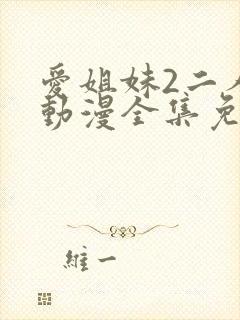 愛姐妹2二
動漫全集免
維一